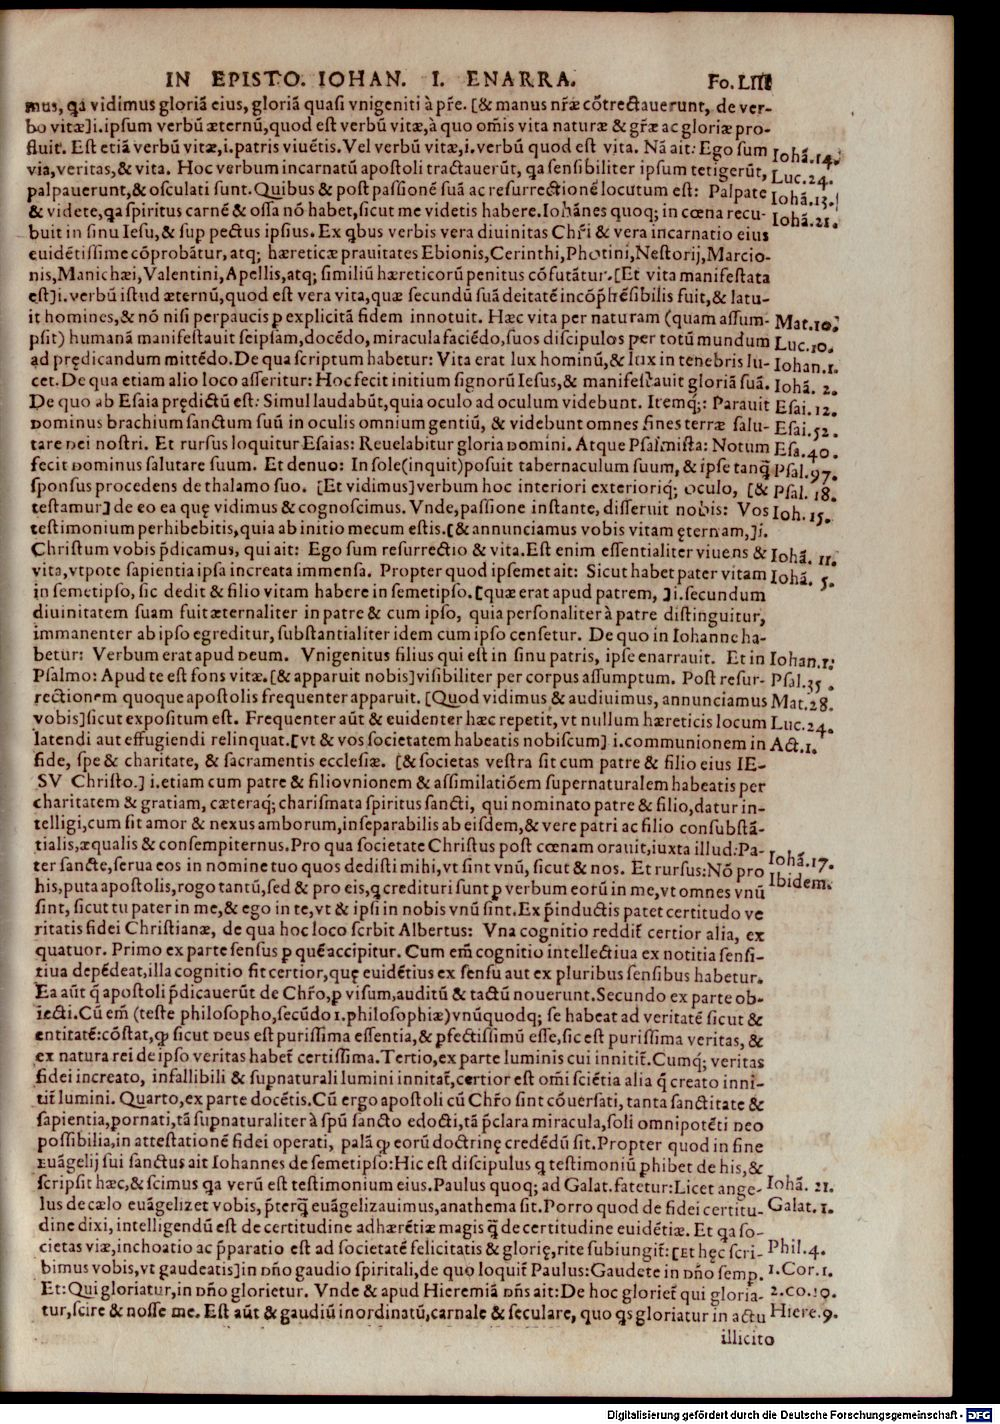 IN EPISTO. IOHAN. I. ENARRA. Fo. LIII
mus, qa vidimus gloriã eius, gloriã quasi vnigeniti à pr̃e. [& manus nr̃æ cõtrectauerunt, de ver-
bo vitæ]i.ipsum verbũ æternũ,quod est verbũ vitæ,à quo om̃is vita naturæ & gr̃æ ac gloriæ pro-
fluit. Est etiã verbũ vitæ,i.patris viuẽtis. Vel verbũ vitæ,i.verbũ quod est vita. Nã ait: Ego sum Iohã.14.
via,veritas,& vita. Hoc verbum incarnatũ apostoli tractauerũt, qa sensibiliter ipsum tetigerũt, Luc.24.
palpauerunt,& osculati sunt.Quibus & post passionẽ suã ac resurrectionẽ locutum est: Palpate Iohã.13.
& videte,qa spiritus carnẽ & ossa nõ habet,sicut me videtis habere.Iohãnes quoq; in cœna recu- Iohã.21.
buit in sinu Iesu,& sup pectus ipsius. Ex qbus verbis vera diuinitas Chr̃i & vera incarnatio eius
euidẽtissime cõprobãtur, atq; hæreticæ prauitates Ebionis,Cerinthi,Photini,Nestorij,Marcio-
nis,Manichæi,Valentini,Apellis,atq; similiũ hæreticorũ penitus cõfutãtur.[Et vita manifestata
est]i.verbũ istud æternũ,quod est vera vita,quæ secundũ suã deitatẽ incõp̃hẽsibilis fuit,& latu-
it homines,& nõ nisi perpaucis ꝑ explicitã fidem innotuit. Hæc vita per naturam (quam assum- Mat.10.
psit) humanã manifestauit seipsam,docẽdo,miracula faciẽdo,suos discipulos per totũ mundum Luc.10.
ad prędicandum mittẽdo.De qua scriptum habetur: Vita erat lux hominũ,& lux in tenebris lu- Iohan.1.
cet.De qua etiam alio loco asseritur: Hoc fecit initium signorũ Iesus,& manifestauit gloriã suã. Iohã. 2.
De quo ab Esaia prędictũ est: Simul laudabũt,quia oculo ad oculum videbunt. Itemq;: Parauit Esai. 12.
Dominus brachium sanctum suũ in oculis omnium gentiũ, & videbunt omnes fines terræ salu- Esai.52.
tare Dei nostri. Et rursus loquitur Esaias: Reuelabitur gloria Domini. Atque Psalmista: Notum Esa.40.
fecit Dominus salutare suum. Et denuo: In sole(inquit)posuit tabernaculum suum,& ipse tanq̃ Psal.97.
sponsus procedens de thalamo suo. [Et vidimus]verbum hoc interiori exterioriq; oculo, [& Psal. 18.
testamur] de eo ea quę vidimus & cognoscimus. Vnde,passione instante, disseruit nobis: Vos Ioh. 15.
testimonium perhibebitis,quia ab initio mecum estis.[& annunciamus vobis vitam ęternam,]i.
Christum vobis p̃dicamus, qui ait: Ego sum resurrectio & vita.Est enim essentialiter viuens & Iohã. 11.
vita,vtpote sapientia ipsa increata immensa. Propter quod ipsemet ait: Sicut habet pater vitam Iohã. 5.
in semetipso, sic dedit & filio vitam habere in semetipso.[quæ erat apud patrem, ]i.secundum
diuinitatem suam fuit æternaliter in patre & cum ipso, quia personaliter à patre distinguitur,
immanenter ab ipso egreditur,substantialiter idem cum ipso censetur. De quo in Iohanne ha-
betur: Verbum erat apud Deum. Vnigenitus filius qui est in sinu patris, ipse enarrauit. Et in Iohan.1.
Psalmo: Apud te est fons vitæ.[& apparuit nobis]visibiliter per corpus assumptum. Post resur- Psal.35.
rectionem quoque apostolis frequenter apparuit. [Quod vidimus & audiuimus, annunciamus Mat.28.
vobis]sicut expositum est. Frequenter aũt & euidenter hæc repetit, vt nullum hæreticis locum Luc.24.
latendi aut effugiendi relinquat.[vt & vos societatem habeatis nobiscum] i.communionem in Act.1.
fide, spe & charitate, & sacramentis ecclesiæ. [& societas vestra sit cum patre & filio eius IE-
SV Christo.] i.etiam cum patre & filio vnionem & assimilatiõem supernaturalem habeatis per
charitatem & gratiam, cæteraq; charismata spiritus sancti, qui nominato patre & filio,datur in-
telligi,cum sit amor & nexus amborum,inseparabilis ab eisdem,& vere patri ac filio consubstã-
tialis,æqualis & consempiternus. Pro qua societate Christus post cœnam orauit,iuxta illud:Pa-
ter sancte,serua eos in nomine tuo quos dedisti mihi,vt sint vnũ, sicut & nos. Et rursus:Nõ pro Iohã.17.
his,puta apostolis,rogo tantũ,sed & pro eis,q credituri sunt ꝑ verbum eorũ in me,vt omnes vnũ Ibidem.
sint, sicut tu pater in me,& ego in te,vt & ipsi in nobis vnũ sint.Ex p̃inductis patet certitudo ve
ritatis fidei Christianæ, de qua hoc loco scrbit Albertus: Vna cognitio reddit̃ certior alia, ex
quatuor. Primo ex parte sensus ꝑ quẽ accipitur. Cum em̃ cognitio intellectiua ex notitia sensi-
tiua depẽdeat,illa cognitio fit certior,quę euidẽtius ex sensu aut ex pluribus sensibus habetur.
Ea aũt q̃ apostoli p̃dicauerũt de Chr̃o,ꝑ visum,auditũ & tactũ nouerunt.Secundo ex parte ob-
iecti.Cũ em̃ (teste philosopho,secũdo 1.philosophiæ)vnũquodq; se habeat ad veritatẽ sicut &
entitatẽ:cõstat,qꝫ sicut Deus est purissima essentia,& ꝑfectissimũ esse,sic est purissima veritas, &
ex natura rei de ipso veritas habet̃ certissima.Tertio,ex parte luminis cui innitit̃.Cumq; veritas
fidei increato, infallibili & supnaturali lumini innitat̃,certior est om̃i sciẽtia alia q̃ creato inni-
tit̃ lumini. Quarto,ex parte docẽtis.Cũ ergo apostoli cũ Chr̃o sint cõuersati, tanta sanctitate &
sapientia,ꝑornati,tã supnaturaliter à spũ sancto edocti,tã p̃clara miracula,soli omnipotẽti Deo
possibilia,in attestationẽ fidei operati, palã qꝫ eorũ doctrinę credẽdũ sit.Propter quod in fine
Euãgelij sui sanctus ait Iohannes de semetipso:Hic est discipulus q testimoniũ ꝑhibet de his,&
scripsit hæc,& scimus qa verũ est testimonium eius.Paulus quoq; ad Galat.fatetur:Licet ange- Iohã. 21.
lus de cælo euãgelizet vobis, p̃terq̃ euãgelizauimus,anathema sit.Porro quod de fidei certitu- Galat. 1.
dine dixi, intelligendũ est de certitudine adhærẽtiæ magis q̃ de certitudine euidẽtiæ. Et qa so-
cietas viæ,inchoatio ac p̃paratio est ad societatẽ felicitatis & glorię,rite subiungit̃:[Et hęc scri- Phil.4.
bimus vobis,vt gaudeatis]in dño gaudio spiritali,de quo loquit̃ Paulus:Gaudete in dño semp. 1.Cor.1.
Et:Qui gloriatur,in dño glorietur. Vnde & apud Hieremiã dñs ait:De hoc glorief̃ qui gloria- 2.co.10.
tur,scire & nosse me. Est aũt & gaudiũ inordinatũ,carnale & seculare, quo qs gloriatur in actu Hiere.9.
illicito
Digitalisierung gefördert durch die Deutsche Forschungsgemeinschaft - DFG